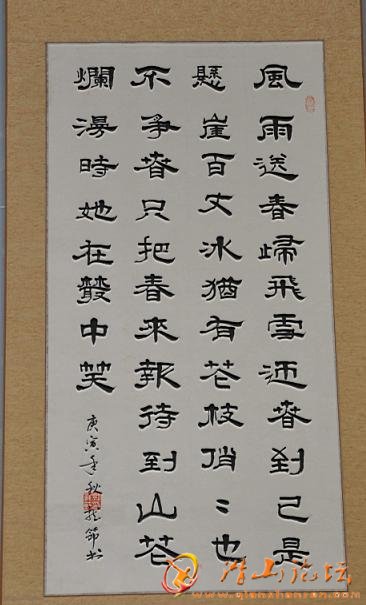 風雨送春歸飛雪迎春到已是
懸崖百丈冰猶有花枝俏〻也
不爭春只把春來報待到山花
爛漫時她在叢中笑
庚寅年秋
书
潜山论坛